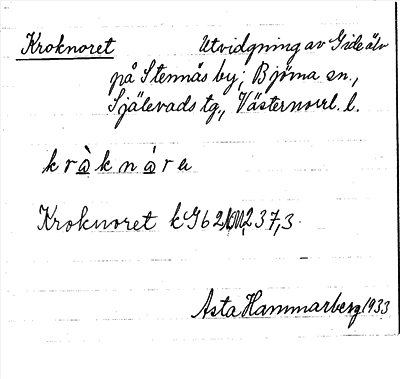 Kroknoret Utvidgning av Gide älv
på Stennäs by; Björna sn.,
Själevads tg., Västernorrl. l.
kràknára
Kroknoret kG62 237,3
Asta Hammarberg 1933